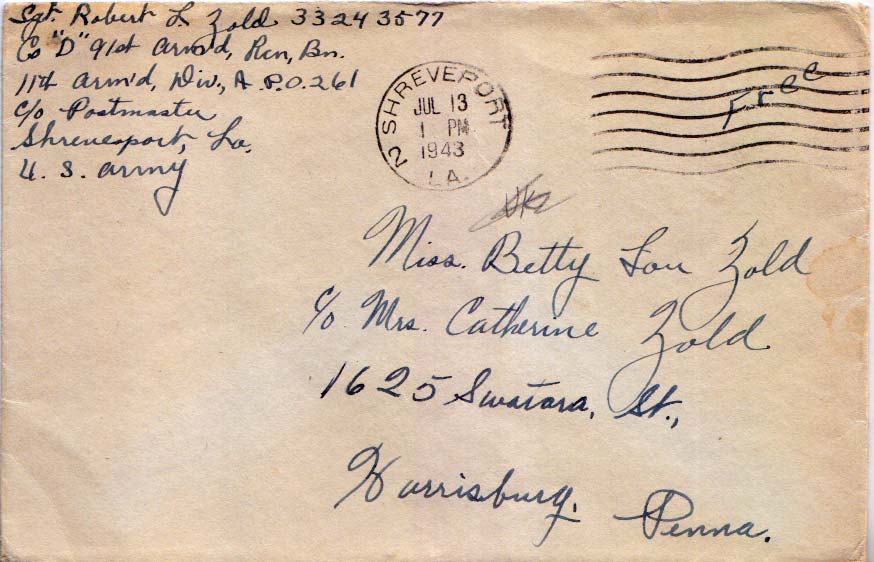 Sgt. Robert L Zold 33243577
Co "D" 91st Arm'd, Rcn, Bn.
11th Arm'd, Div., A.P.O. 261
c/o Postmaster
Shreveport, La,
U. S. Army
2 SHREVEPORT
JUL 13
1 PM
1943
LA.
Free
Miss. Betty Lou Zold
c/o Mrs. Catherine Zold
1625 Swatara, St.,
Harrisburg,
Penna.